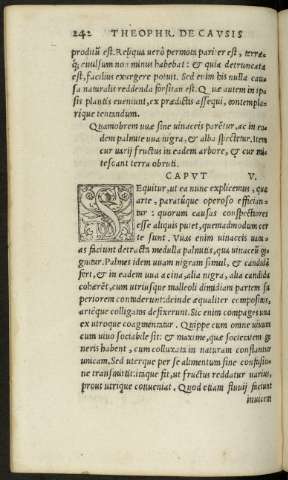 242 THEOPHR. DE CAVSIS
productū est. Reliqua uerò permota pariter est, terræ-
q; euulsum non minus habebat: & quia detruncata
est, facilius exurgere potuit. Sed enim his nulla cau
sa naturalis reddenda forsitan est. Quæ autem in ipsis
plantis eueniunt, ex prædictis assequi, contempla-
rique tentandum.
Quamobrem uuæ sine uinaceis parētur, ac in eo
dem palmite uua nigra, & alba spectetur. Item
cur uarij fructus in eadem arbore, & cur mi
tescant terra obruti.
CAPVT V.
SEquitur, ut ea nunc explicemus, quæ
arte, paratúque operoso efficiun
tur: quorum causas conspectiores
esse aliquis putet, quemadmodum cer
te sunt. Vuas enim uinaceis uacu-
as faciunt detracta medulla palmitis, qua uinaceū gi-
gnitur. Palmes idem uuam nigram simul, & candidā
fert, & in eadem uua acina, alia nigra, alia candida
cohærēt, cum utriusque malleoli dimidiam partem su
periorem contuderunt: deinde æqualiter compositos,
artéque colligatos defixerunt. Sic enim compages una
ex utroque coagmentatur. Quippe cum omne uiuum
cum uiuo sociabile sit: & maxime, quæ societatem ge
neris habent, cum collocata in naturam constantur
unicam. Sed uterque per se alimentum sine confusio
ne transmittit: itaque fit, ut fructus reddatur uarius,
prout utrique conueniat. Quod etiam fluuij faciunt
inuicem